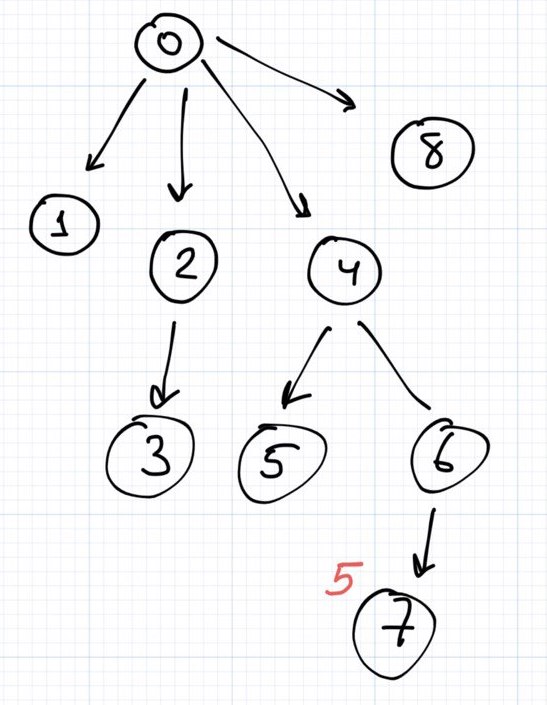 0
8
1
2
4
3
5
6
5
7